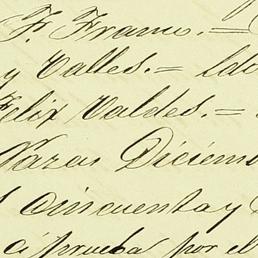 F. Franco.=
y Valles.= Ldo
Felix Valdes.=
Nazas Diciem
cincuenta y
prueba por el